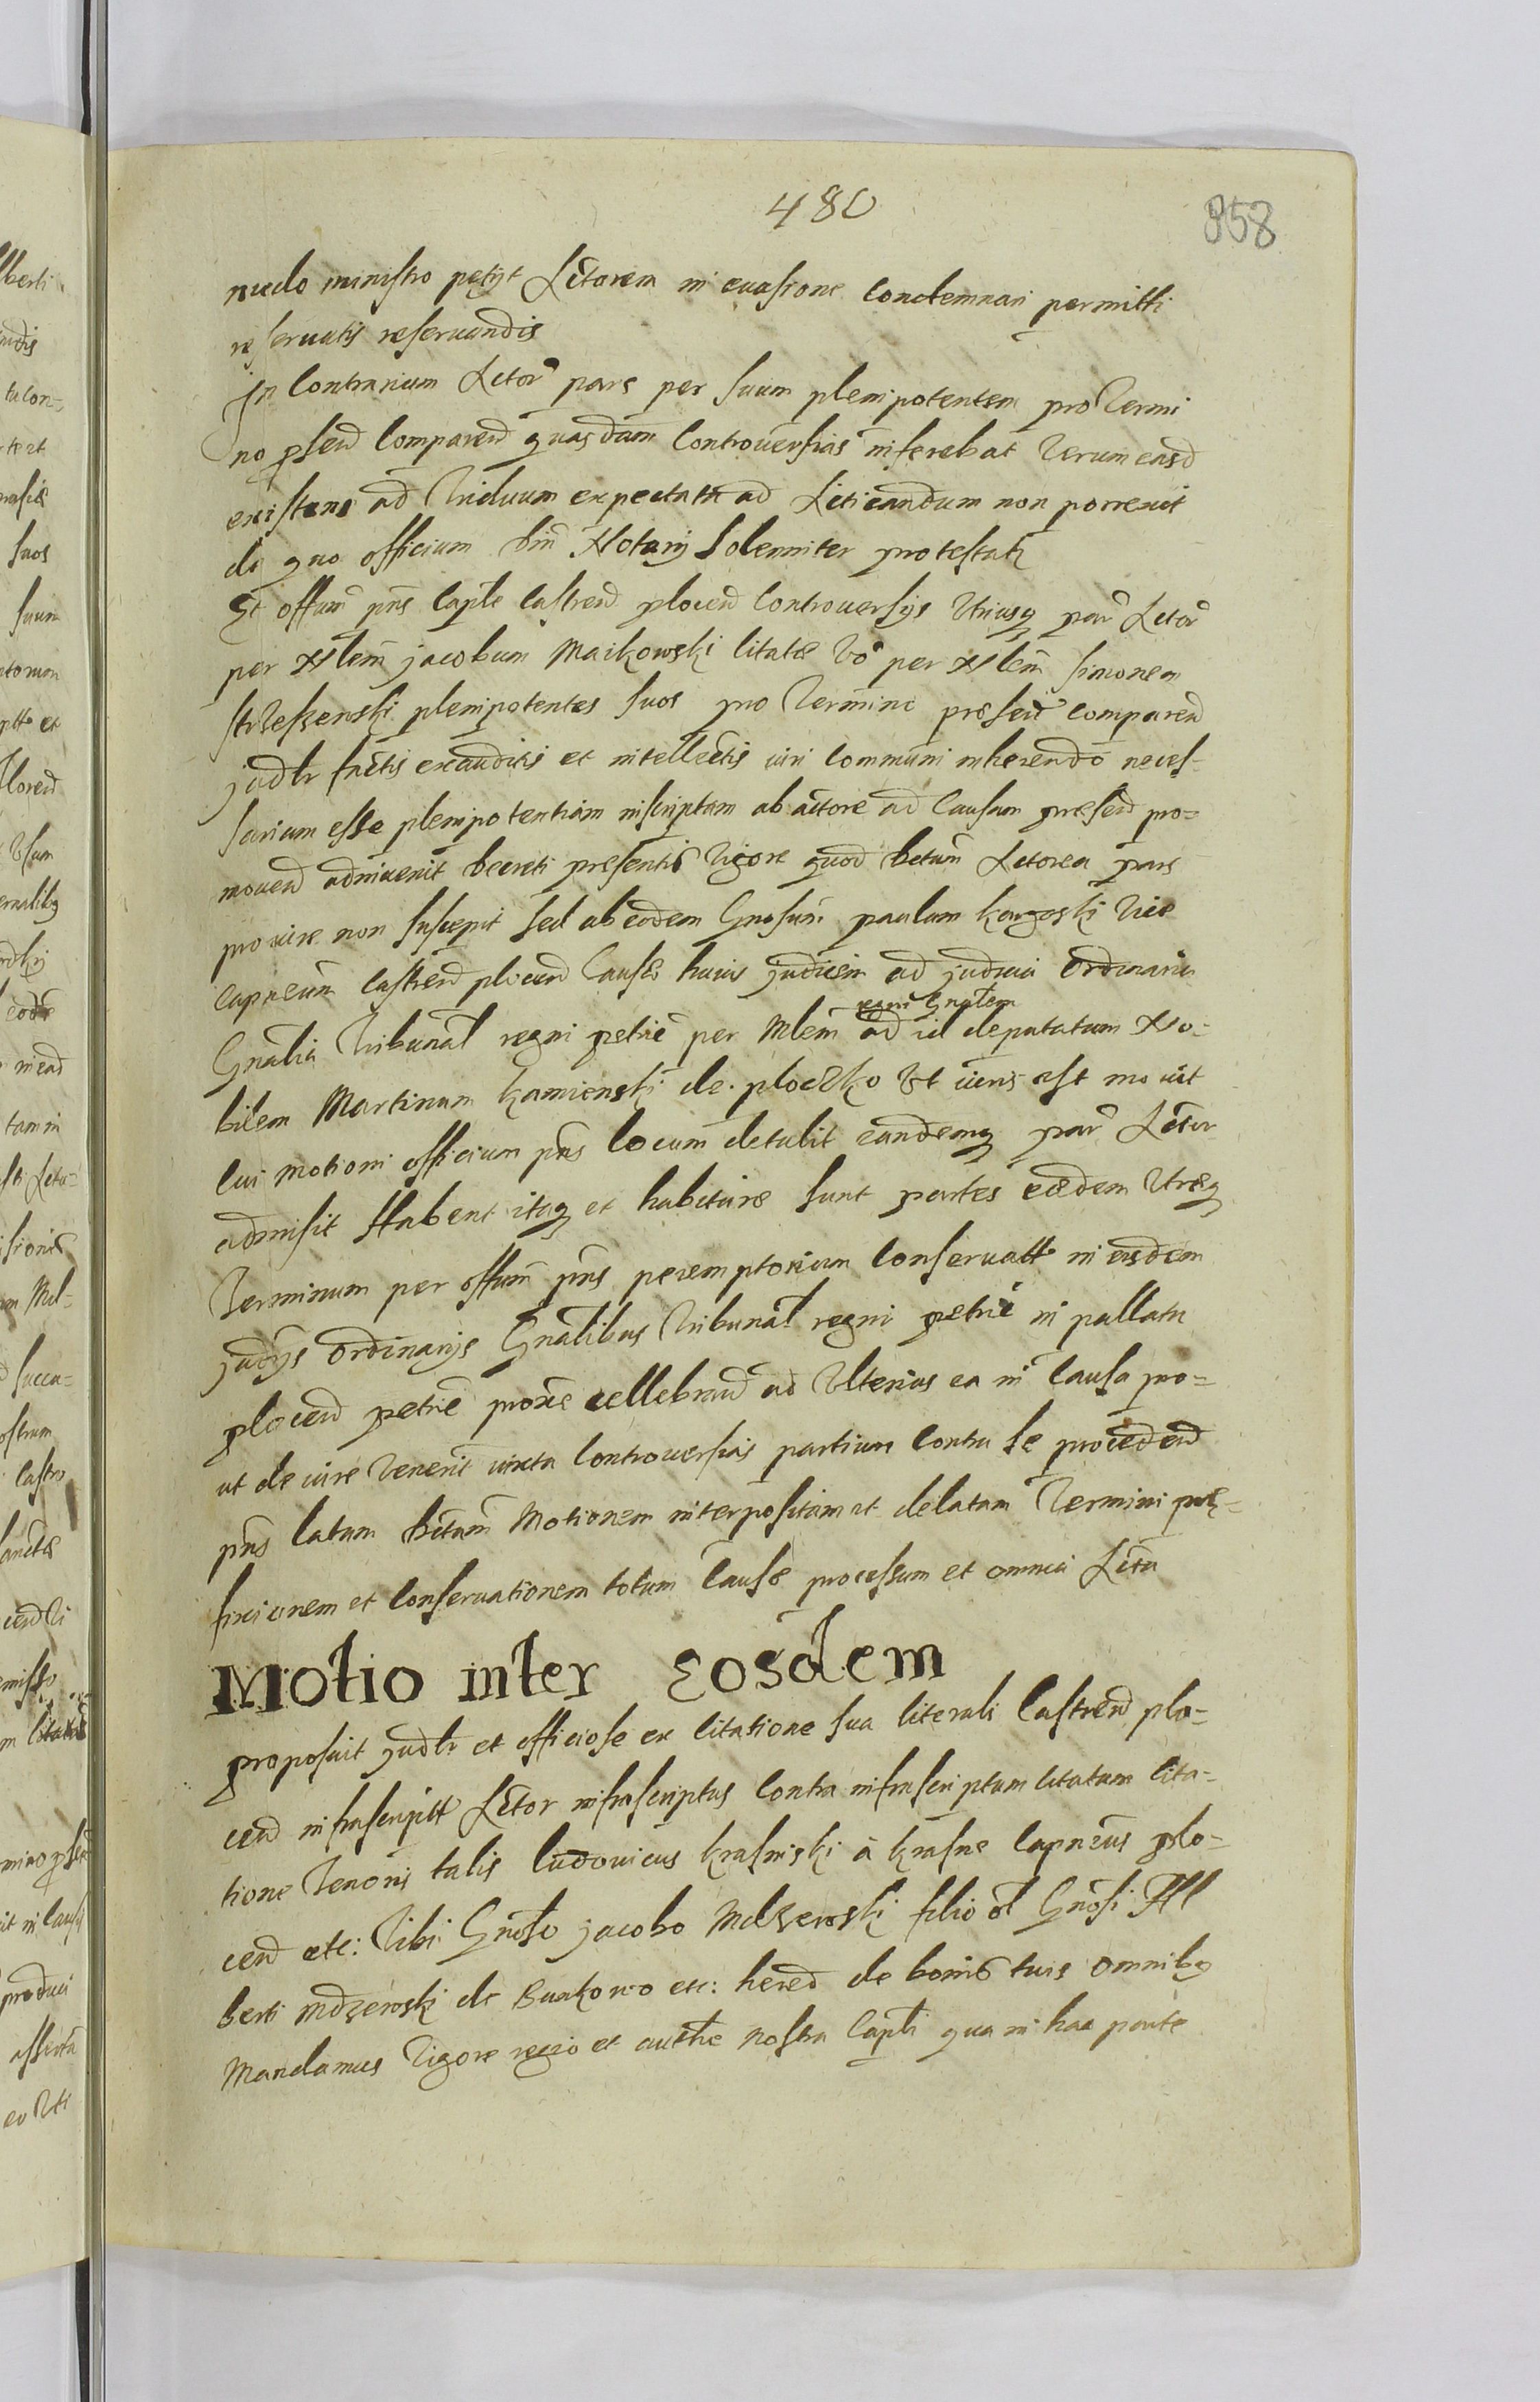 480
858
medo ministro petijt Actorem in euasione Condemnari permitti
reseruatis reseruandis
In Contrarium Actor pars per suum plenipotentem pro Termi
no psen Comparen quasdam Controuersias inferebat Verum easd
existens ad Triduum expectatu ad Acticandum non porrexit
de quo officium dni Notarij Solemniter protestatr
Et offum pns Capte Castren plocen Controuersijs Vtriusq par Actor
per Nlem jacobum Maikowski Citatae Vo per Nlem Simonem
plenipotentes suos pro Termino presen comparen
judlr factis exauditis et intellectis iuri Communi inherendo neces-
sarium esse plenipotentiam inscriptam ab actore ad Causam presen pro-
mouen adinuenit Decreti presentis Vigore quod Decretum Actorea pars
pro iure non suscepit sed ab eodem Gnosum paulum Vice
capneum Castren plocen Causae huius judicem ad judicia Ordinaria
regni Gnalem
Gnalia Tribunal regni petrie per Mlem ad id deputatum No-
bilem Martinum kamienski de ploczko Vt iuris est mouit
Cui motioni officium pns locum detulit eandemq par Actor
admisit Habent itaq et habiturae sunt partes eaedem Vtraeq
Terminum per offum pns peremptorium Conseruatt in eisdem
judijs Ordinarijs Gnalibus Tribunal regni petrie in pallatu
plocen petrie proxe cellebran ad Vlterius ea in Causa pro-
ut de iure Venerit iuxta Controuersias partium Contra se proceden
pns latum Dctum Motionem interpositam et delatam Termini pre-
fixionem et Conseruationem totum Causae processum et omnia Acta
Motio inter Eosdem
proposuit judlr et officiose ex Citatione sua literali Castren plo-
cen infrascriptt Actor infrascriptus Contra infrascriptum Citatum Cita-
tione Tenoris talis ludouicus krasinski a krasne Capneus plo-
cen etc: Tibi Gnoso jacobo Mdzewski filio ol Gnosi Al
berti Mdzewski de etc: hered de bonis tuis Omnibq
Mandamus Vigore regio et authte nostra Captli qua in hac parte